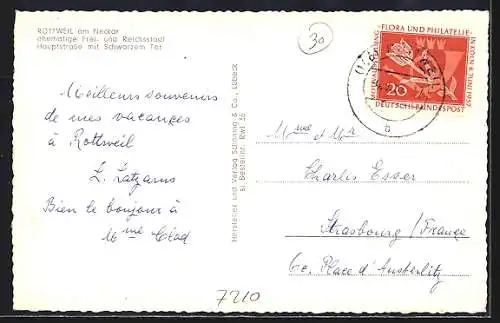 ROTTWEIL am Neckar
ehemalige Frei- und Reichsstadt
Hauptstraße mit Schwarzem Tor
Meilleurs souvenirs
de mes vacances
à Rottweil
L. Latzarus
Bien le bonjour à
Mme Clad
7210
Hersteller und Verlag Schöning & Co., Lübeck
si. Bestellnr. Rwl 36
30
FLORA UND PHILATELIE
IN KÖLN 8. JUNI 1957
20
DEUTSCHE BUNDESPOST
b
Mme et Mr
Charles Esser
Strasbourg / France
6c. Place d'Austerlitz